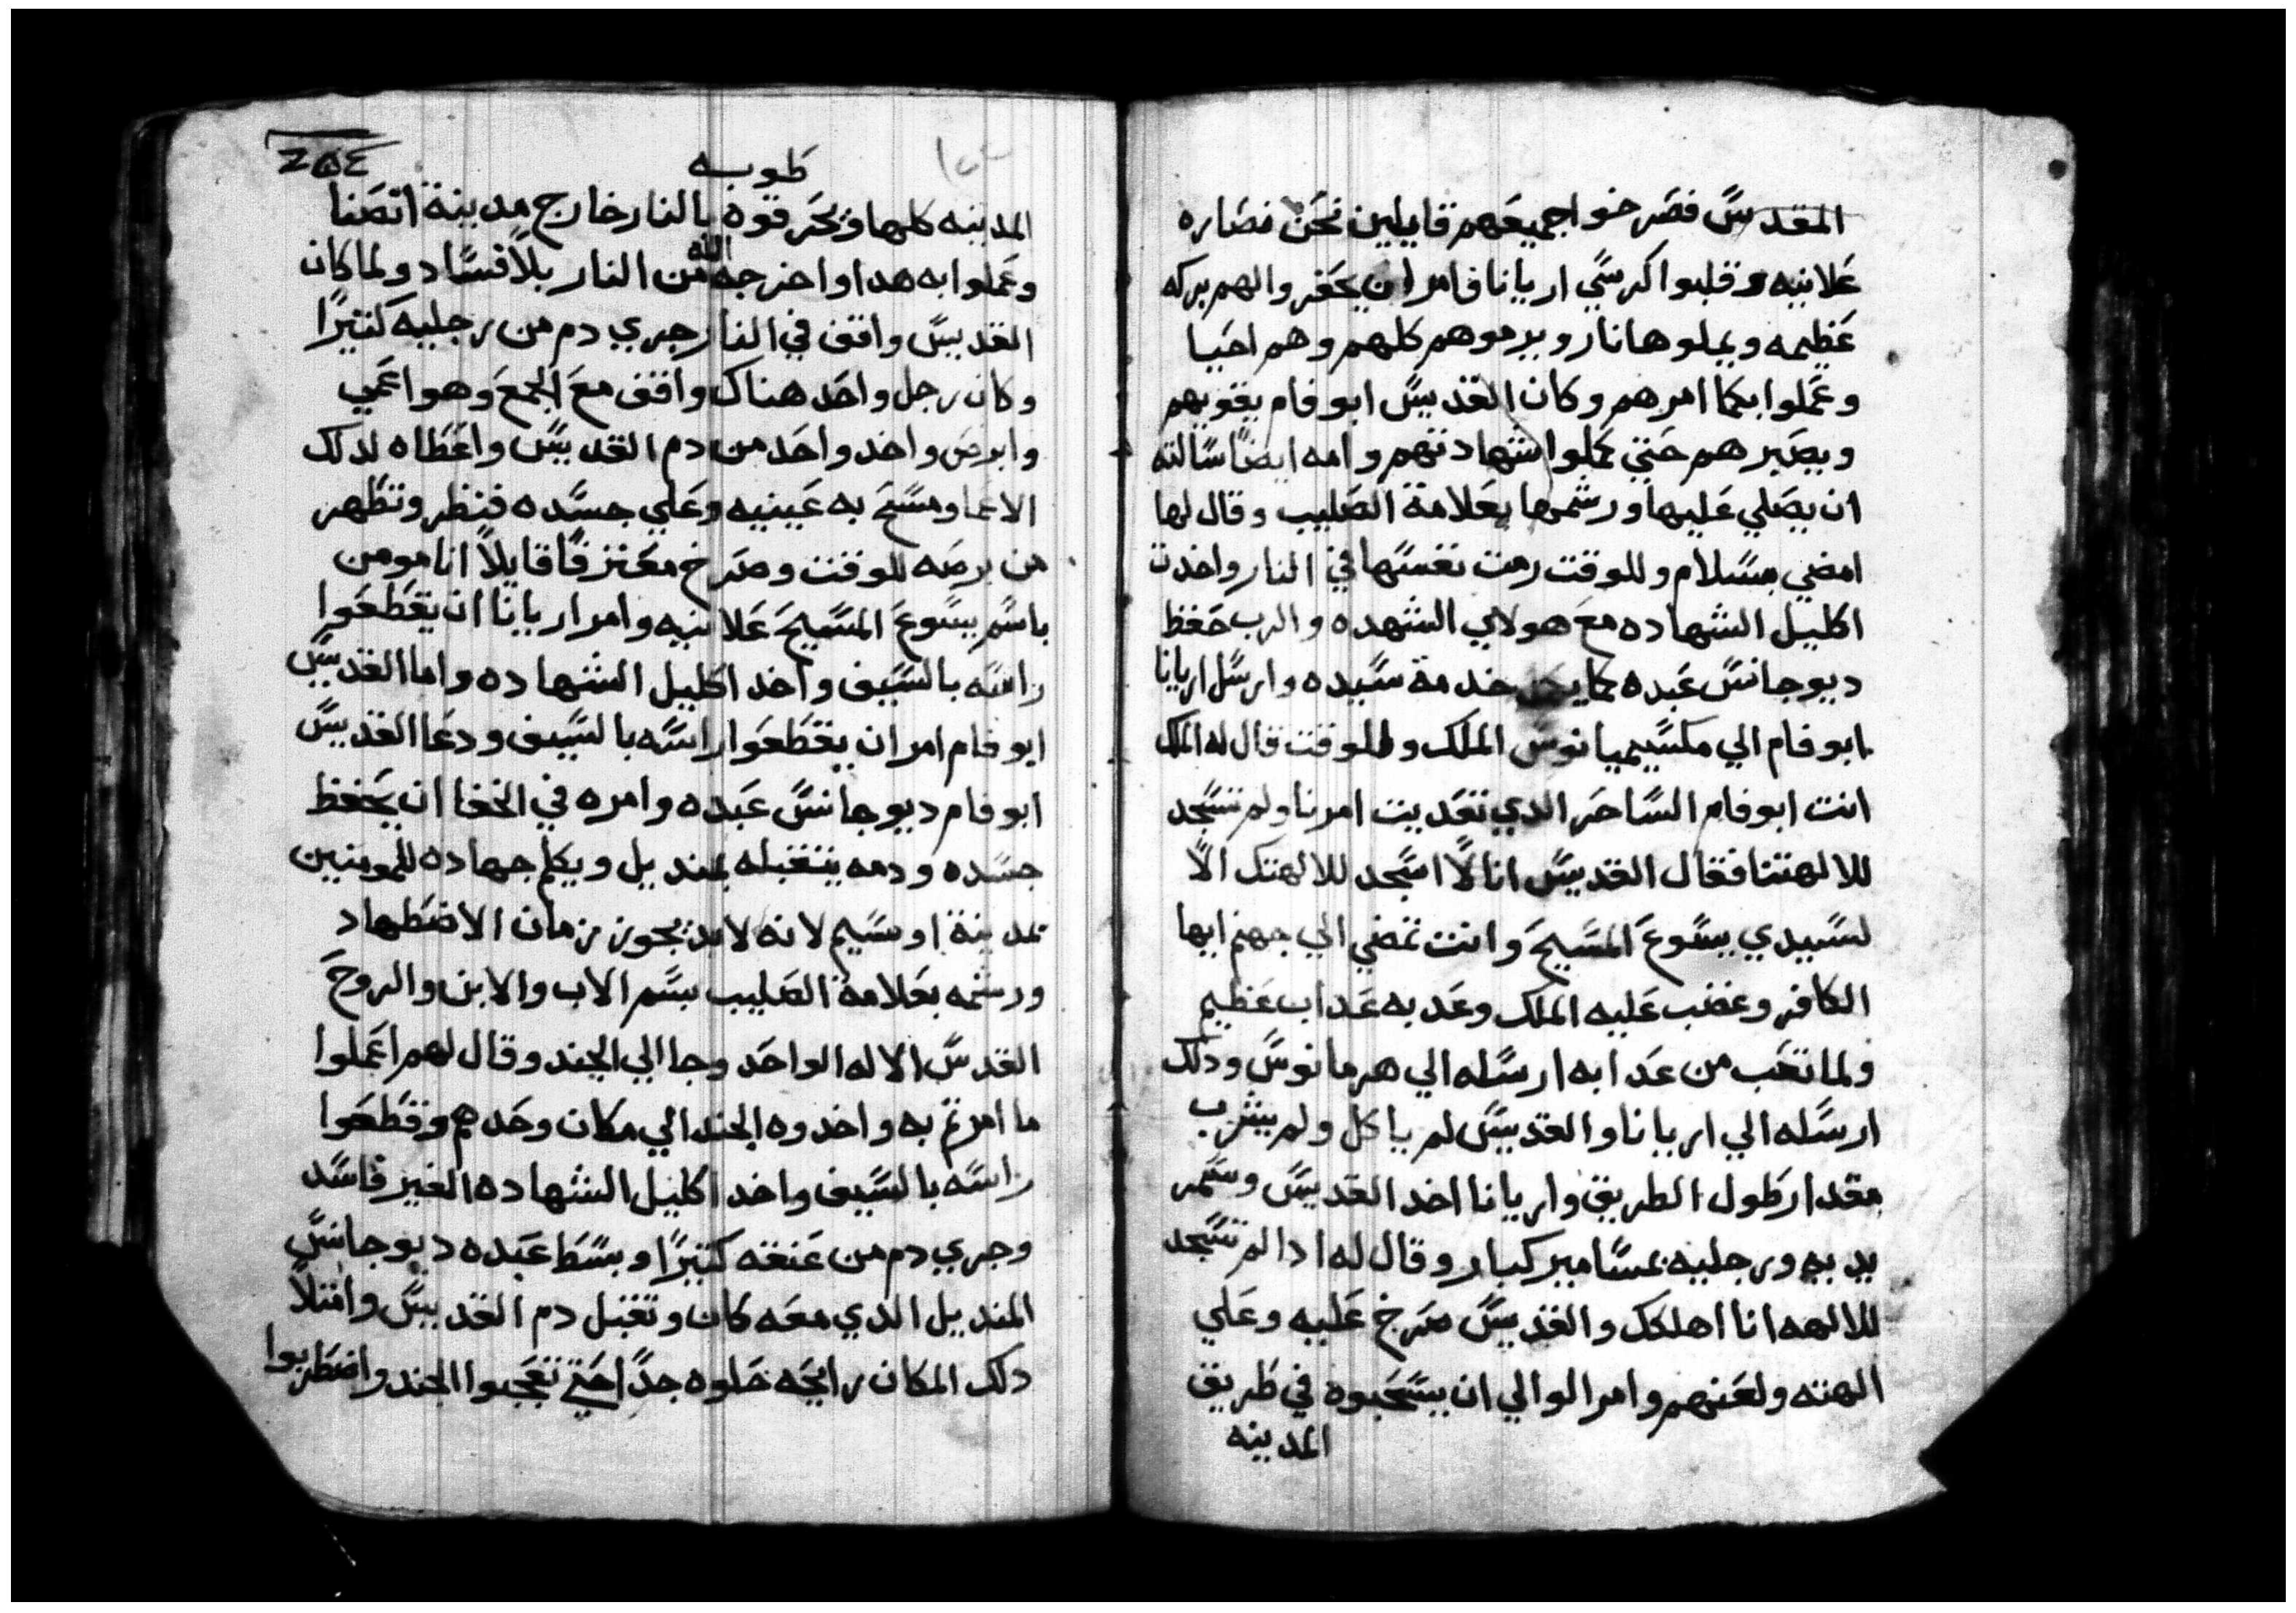 المقدس فصرخوا جميعهم قايلين نحن نصاره
علانيه وقلبوا كرسي اريانا فامر ان يحفروا لهم بركه
عظيمه ويملوها نار ويرموهم كلهم وهم احيا
وعملوا بكما امرهم وكان القديس ابوفام يقويهم
ويصبرهم حتي كملوا شهادتهم وامه ايضًا سالته
ان يصلي عليها ورشمها بعلامة الصليب وقال لها
امضي بسلام وللوقت رمت نفسها في النار واخدت
اكليل الشهاده مع هولاي الشهده والرب حفظ
ديوجانس عبده كما يحق خدمة سيده وارسل اريانا
ابوفام الي مكسيميانوس الملك وللوقت قال له الملك
انت ابوفام الساحر الدي تعديت امرنا ولم تسجد
للالهتنا فقال القديس انا لا اسجد للالهتك الا
لسيدي يسوع المسيح وانت تمضي الي جهنم ايها
الكافر وغضب عليه الملك وعدبه عداب عظيم
ولما تعب من عدابه ارسله الي هرمانوس ودلك
ارسله الي اريانا والقديس لم ياكل ولم يشرب
مقدار طول الطريق واريانا اخد القديس وسمر
يديه ورجليه بمسامير كبار وقال له ادا لم تسجد
للالهه انا اهلكك والقديس صرخ عليه وعلي
الهته ولعنهم وامر الوالي ان يسحبوه في طريق
المدينه
طوبه
المدينه كلها ويحرقوه بالنار خارج مدينة انصنا
وعملوا به هدا واخرجه الله من النار بلا فساد ولما كان
القديس واقف في النار جري دم من رجليه كثيرًا
وكان رجل واحد هناك واقف مع الجمع وهو اعمي
وابرص واخد واحد من دم القديس واعطاه لدلك
الاعما ومسح به عينيه وعلي جسده فنظر وتطهر
من برصه للوقت وصرخ معترفًا قايلًا انا مومن
باسم يسوع المسيح علانيه وامر اريانا ان يقطعوا
راسه بالسيف واخد اكليل الشهاده واما القديس
ابوفام امر ان يقطعوا راسه بالسيف ودعا القديس
ابوفام ديوجانس عبده وامره في الخفا ان يحفظ
جسده ودمه يتقبله بمنديل ويكلم جهاده للمومنين
بمدينة اوسيم لانه لابد يجوز زمان الاضطهاد
ورشمه بعلامة الصليب بسم الاب والابن والروح
القدس الاله الواحد وجا الي الجند وقال لهم اعملوا
ما امرتم به واخدوه الجند الي مكان وحدهم وقطعوا
راسه بالسيف واخد اكليل الشهاده الغير فاسد
وجري دم من عنقه كثيرًا وبسط عبده ديوجانس
المنديل الدي معه كان وتقبل دم القديس وامتلا
دلك المكان رايحه حلوه جدًا حتي تعجبوا الجند واضطربوا